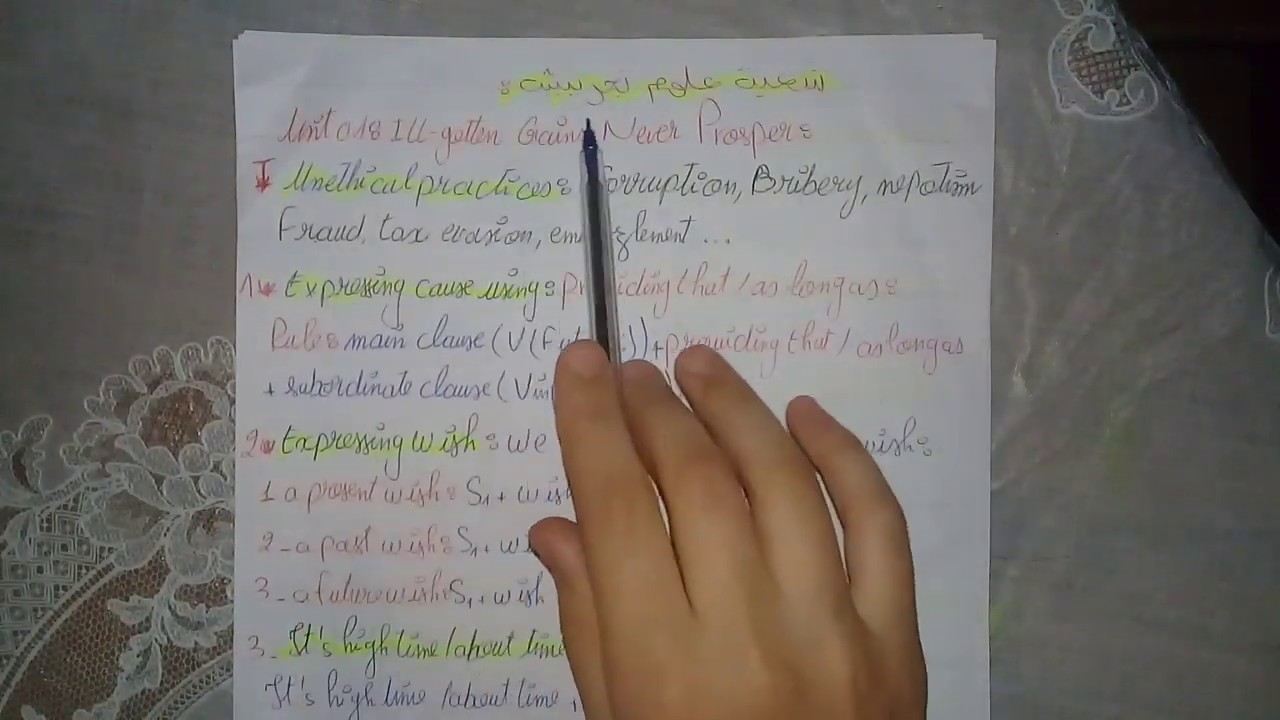 شعبة علوم تجريبية :
Unit 01: Ill-gotten Gains Never Prosper:
I Unethical practices: Corruption, Bribery, nepotism
Fraud, tax evasion, em
1 Expressing cause using: providing that / as long as:
Rule: main clause (V( + providing that / as long as
+ subordinate clause (V
2 Expressing wish: we wish:
1 a present wish: S1 + wish
2 - a past wish: S1 + wi
3 - a future wish S1 + wish
3 - It's high time / about time
It's high time / about time